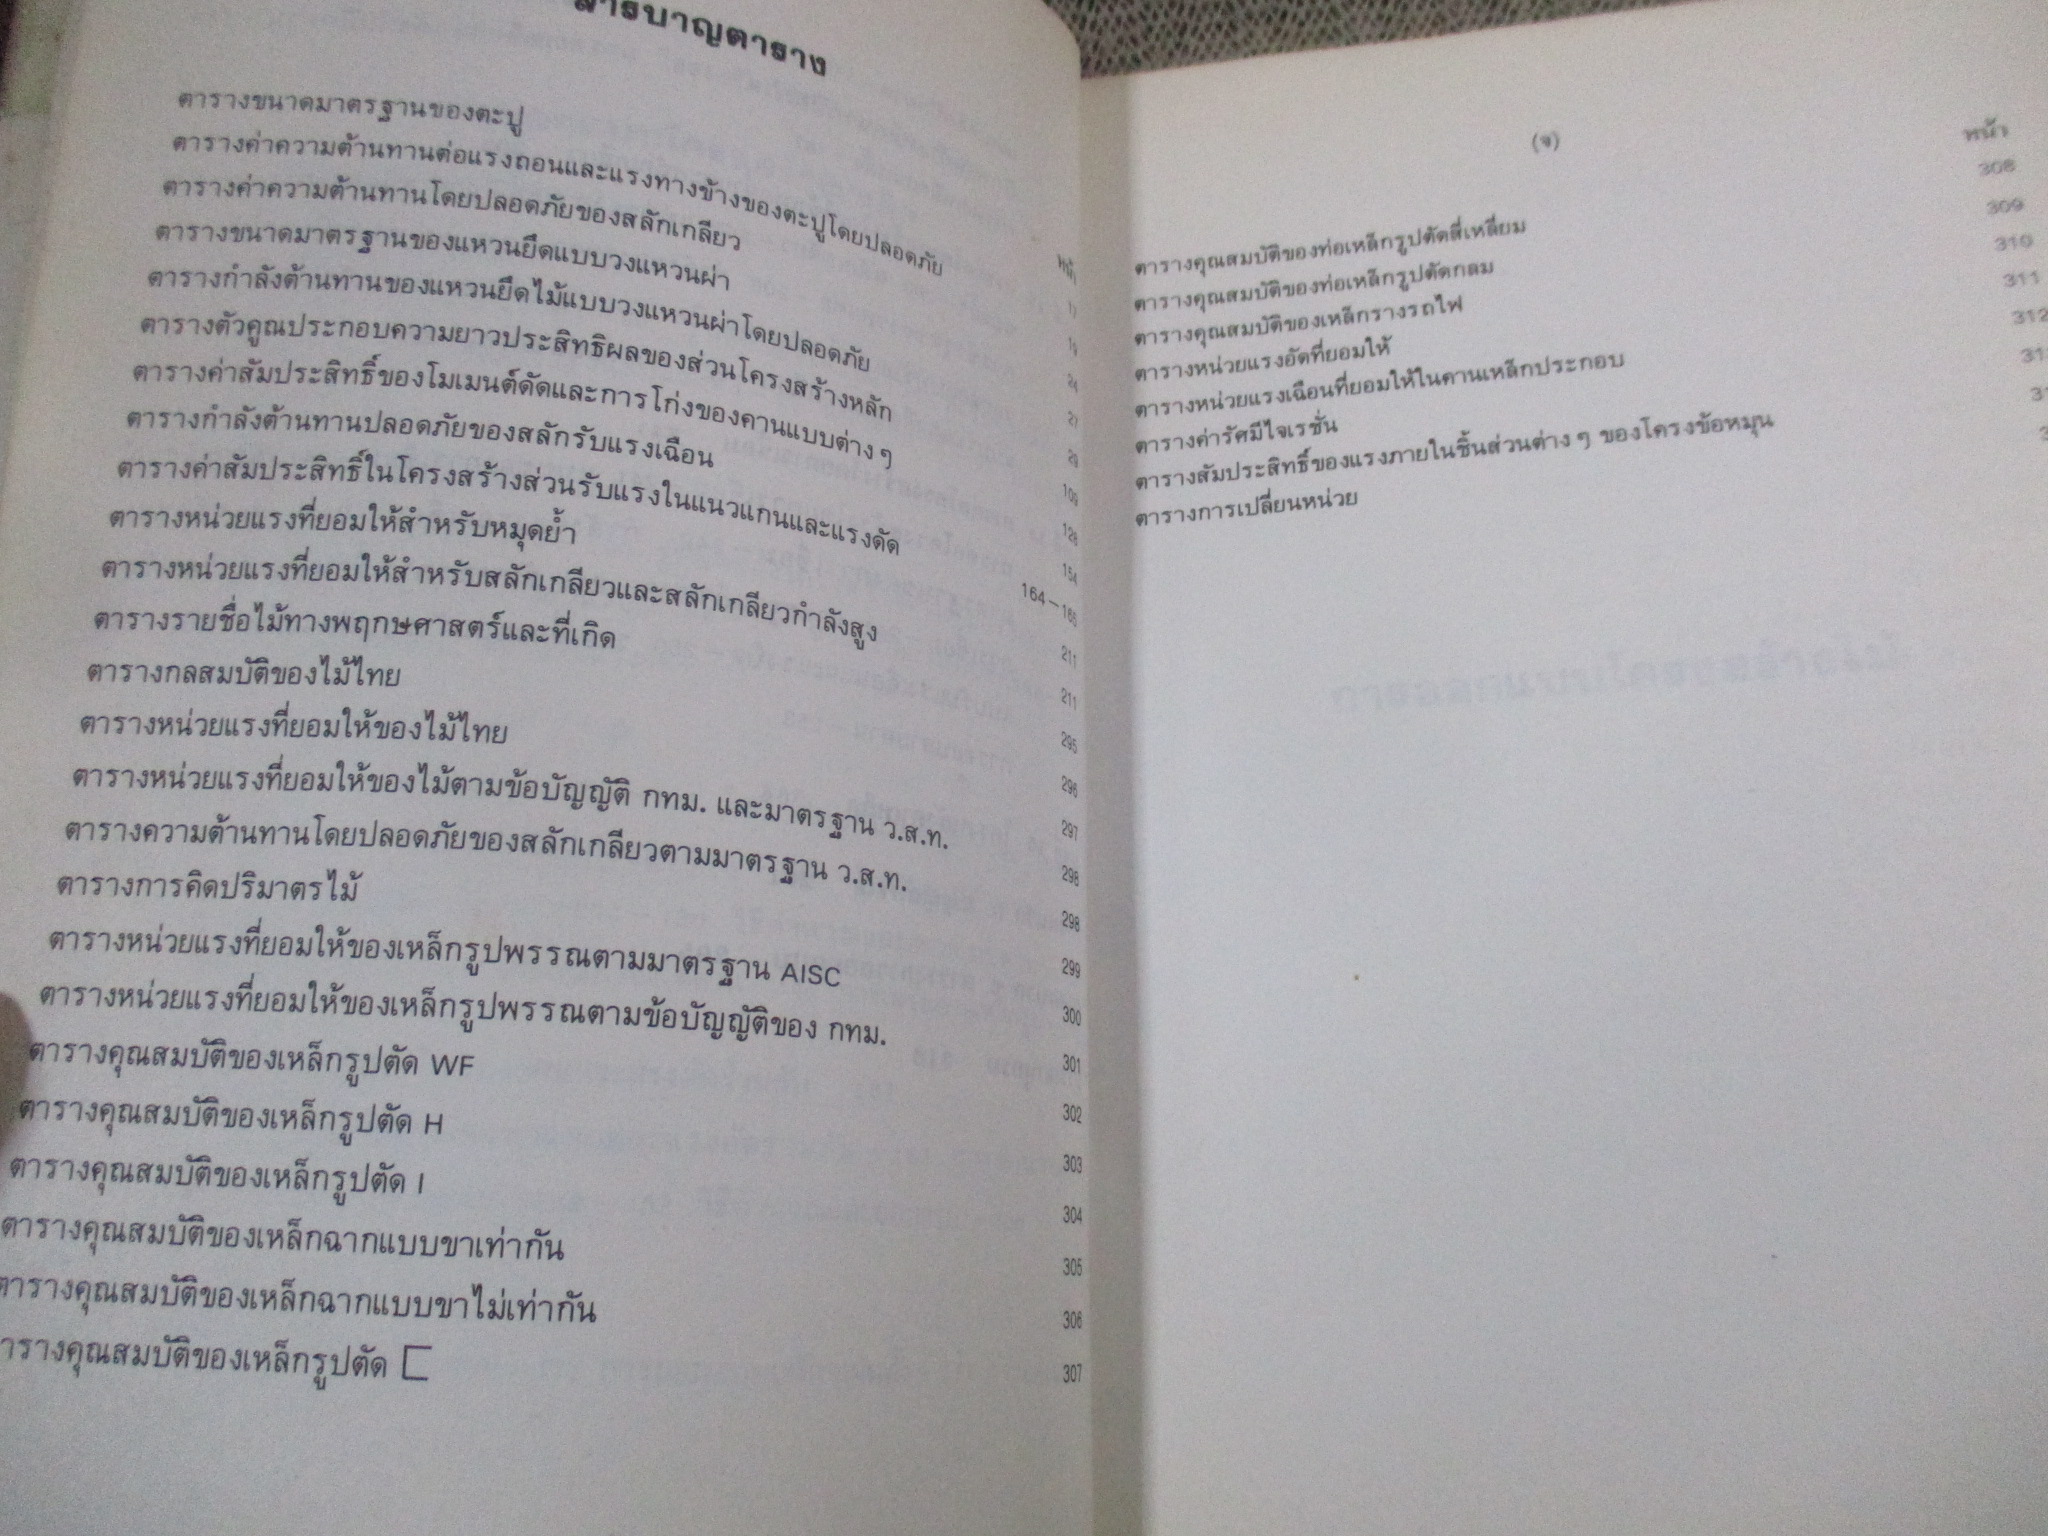 สารบาญตาราง
หน้า
ตารางขนาดมาตรฐานของตะปู 17
ตารางค่าความต้านทานต่อแรงถอนและแรงทางข้างของตะปูโดยปลอดภัย 19
ตารางค่าความต้านทานโดยปลอดภัยของสลักเกลียว 24
ตารางขนาดมาตรฐานของแหวนยึดแบบวงแหวนผ่า 27
ตารางกำลังต้านทานของแหวนยึดไม้แบบวงแหวนผ่าโดยปลอดภัย 29
ตารางตัวคูณประกอบความยาวประสิทธิผลของส่วนโครงสร้างหลัก 109
ตารางค่าสัมประสิทธิ์ของโมเมนต์ดัดและการโก่งของคานแบบต่างๆ 128
ตารางกำลังต้านทานปลอดภัยของสลักรับแรงเฉือน 154
ตารางค่าสัมประสิทธิ์ในโครงสร้างส่วนรับแรงในแนวแกนและแรงดัด 164–165
ตารางหน่วยแรงที่ยอมให้สำหรับหมุดย้ำ 211
ตารางหน่วยแรงที่ยอมให้สำหรับสลักเกลียวและสลักเกลียวกำลังสูง 211
ตารางรายชื่อไม้ทางพฤกษศาสตร์และที่เกิด 295
ตารางกลสมบัติของไม้ไทย 296
ตารางหน่วยแรงที่ยอมให้ของไม้ไทย 297
ตารางหน่วยแรงที่ยอมให้ของไม้ตามข้อบัญญัติ กทม. และมาตรฐาน ว.ส.ท. 298
ตารางความต้านทานโดยปลอดภัยของสลักเกลียวตามมาตรฐาน ว.ส.ท. 298
ตารางการคิดปริมาตรไม้ 299
ตารางหน่วยแรงที่ยอมให้ของเหล็กรูปพรรณตามมาตรฐาน AISC 300
ตารางหน่วยแรงที่ยอมให้ของเหล็กรูปพรรณตามข้อบัญญัติของ กทม. 301
ตารางคุณสมบัติของเหล็กรูปตัด WF 302
ตารางคุณสมบัติของเหล็กรูปตัด H 303
ตารางคุณสมบัติของเหล็กรูปตัด I 304
ตารางคุณสมบัติของเหล็กฉากแบบขาเท่ากัน 305
ตารางคุณสมบัติของเหล็กฉากแบบขาไม่เท่ากัน 306
ตารางคุณสมบัติของเหล็กรูปตัด [ 307
(จ)
หน้า
ตารางคุณสมบัติของท่อเหล็กรูปตัดสี่เหลี่ยม 308
ตารางคุณสมบัติของท่อเหล็กรูปตัดกลม 309
ตารางคุณสมบัติของเหล็กรางรถไฟ 310
ตารางหน่วยแรงอัดที่ยอมให้ 311
ตารางหน่วยแรงเฉือนที่ยอมให้ในคานเหล็กประกอบ 312
ตารางค่ารัศมีไจเรชั่น
ตารางสัมประสิทธิ์ของแรงภายในชิ้นส่วนต่างๆ ของโครงข้อหมุน
ตารางการเปลี่ยนหน่วย